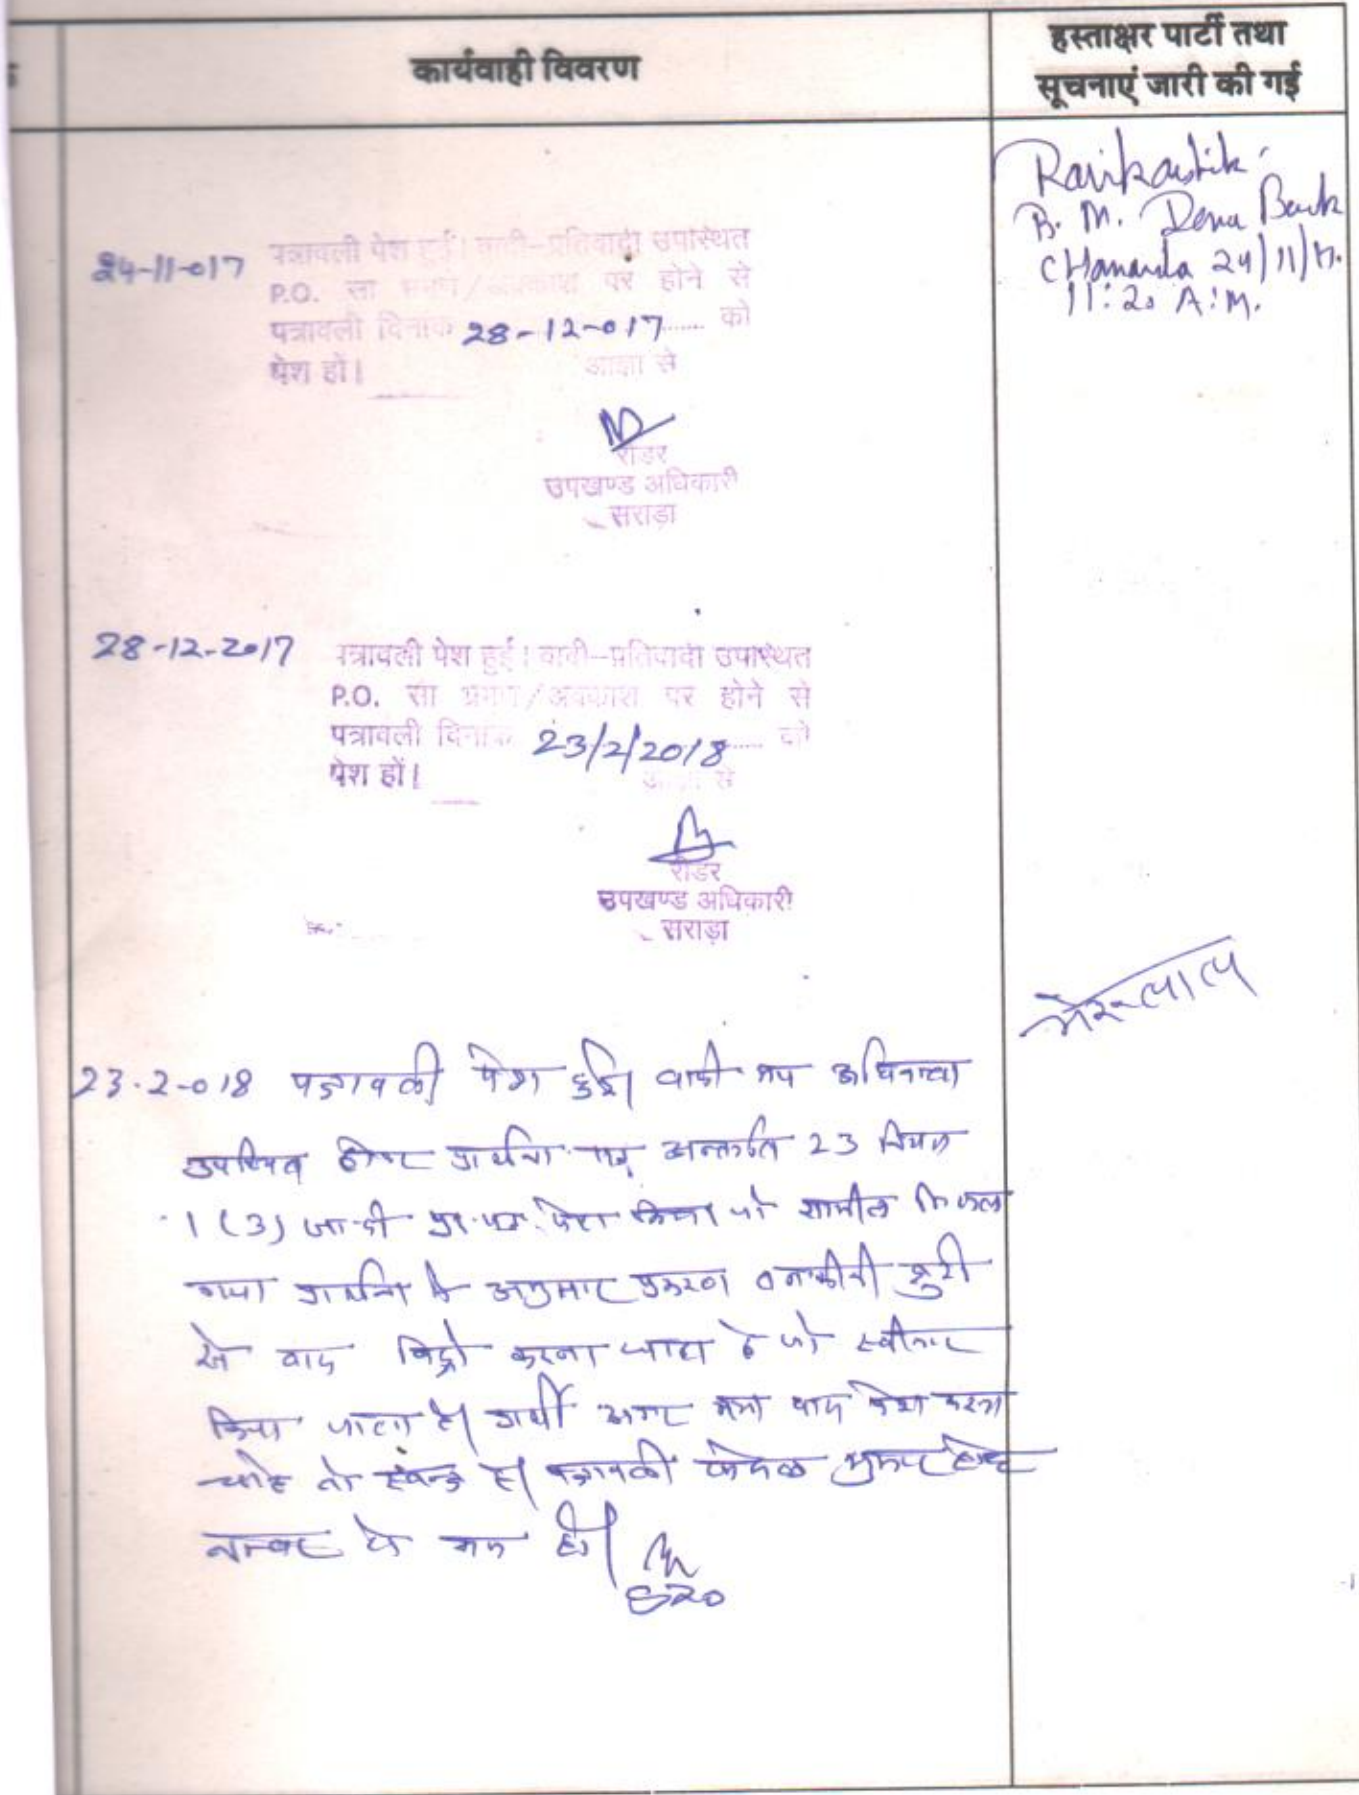 कार्यवाही विवरण
हस्ताक्षर पार्टी तथा
सूचनाएं जारी की गई
Ravikaushik
B. M. Dena Bank
CHamanda 24/11/17.
11:20 A.M.
24-11-017 पत्रावली पेश हुई। वादी-प्रतिवादी उपस्थित
P.O. सा भ्रमण/अवकाश पर होने से
पत्रावली दिनांक 28-12-017 को
पेश हों।
आज्ञा से
रीडर
उपखण्ड अधिकारी
सराड़ा
28-12-2017 पत्रावली पेश हुई। वादी-प्रतिवादी उपस्थित
P.O. सा भ्रमण/अवकाश पर होने से
पत्रावली दिनांक 23/2/2018 को
पेश हों।
आज्ञा से
रीडर
उपखण्ड अधिकारी
सराड़ा
भेरूलाल
23-2-018 पत्रावली पेश हुई। वादी मय अधिवक्ता
उपस्थित होकर प्रार्थना पत्र अन्तर्गत 23 नियम
1 (3) जा.दी प्र.पत्र. पेश किया जो शामील
गया प्रार्थना के अनुसार प्रकरण तकनीकी त्रुटी
से वाद विड्रो करना चाहा है जो स्वीकार
किया जाता है। प्रार्थी अगर नया वाद पेश करना
चाहे तो स्वतन्त्र है। पत्रावली फैसल शुमार होकर
नम्बर से कम हो।
SDO